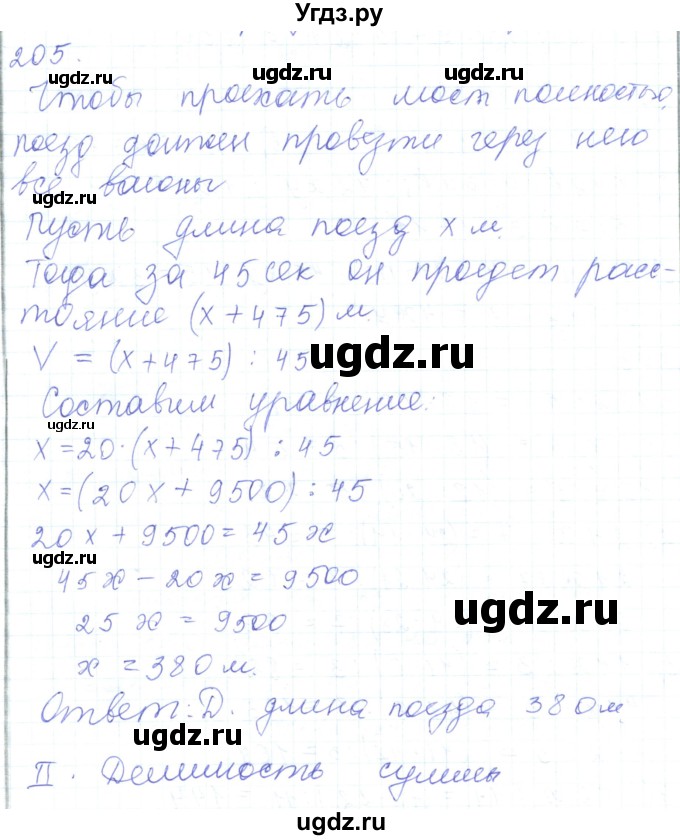 Угдз.ру
205.
Чтобы проехать мост полностью,
поезд должен провезти через него
все вагоны
Пусть длина поезд x м.
Тогда за 45 сек он проедет расс-
тояние (x + 475) м.
V = (x + 475) : 45
Составим уравнение:
x = 20 · (x + 475) : 45
x = (20x + 9500) : 45
20x + 9500 = 45x
45x − 20x = 9500
25x = 9500
x = 380 м.
Ответ: D. длина поезда 380 м
II. Делимость суммы
ugdz.ru
ugdz.ru
ugdz.ru
ugdz.ru
ugdz.ru
ugdz.ru
ugdz.ru
ugdz.ru
ugdz.ru
ugdz.ru
ugdz.ru
ugdz.ru
ugdz.ru